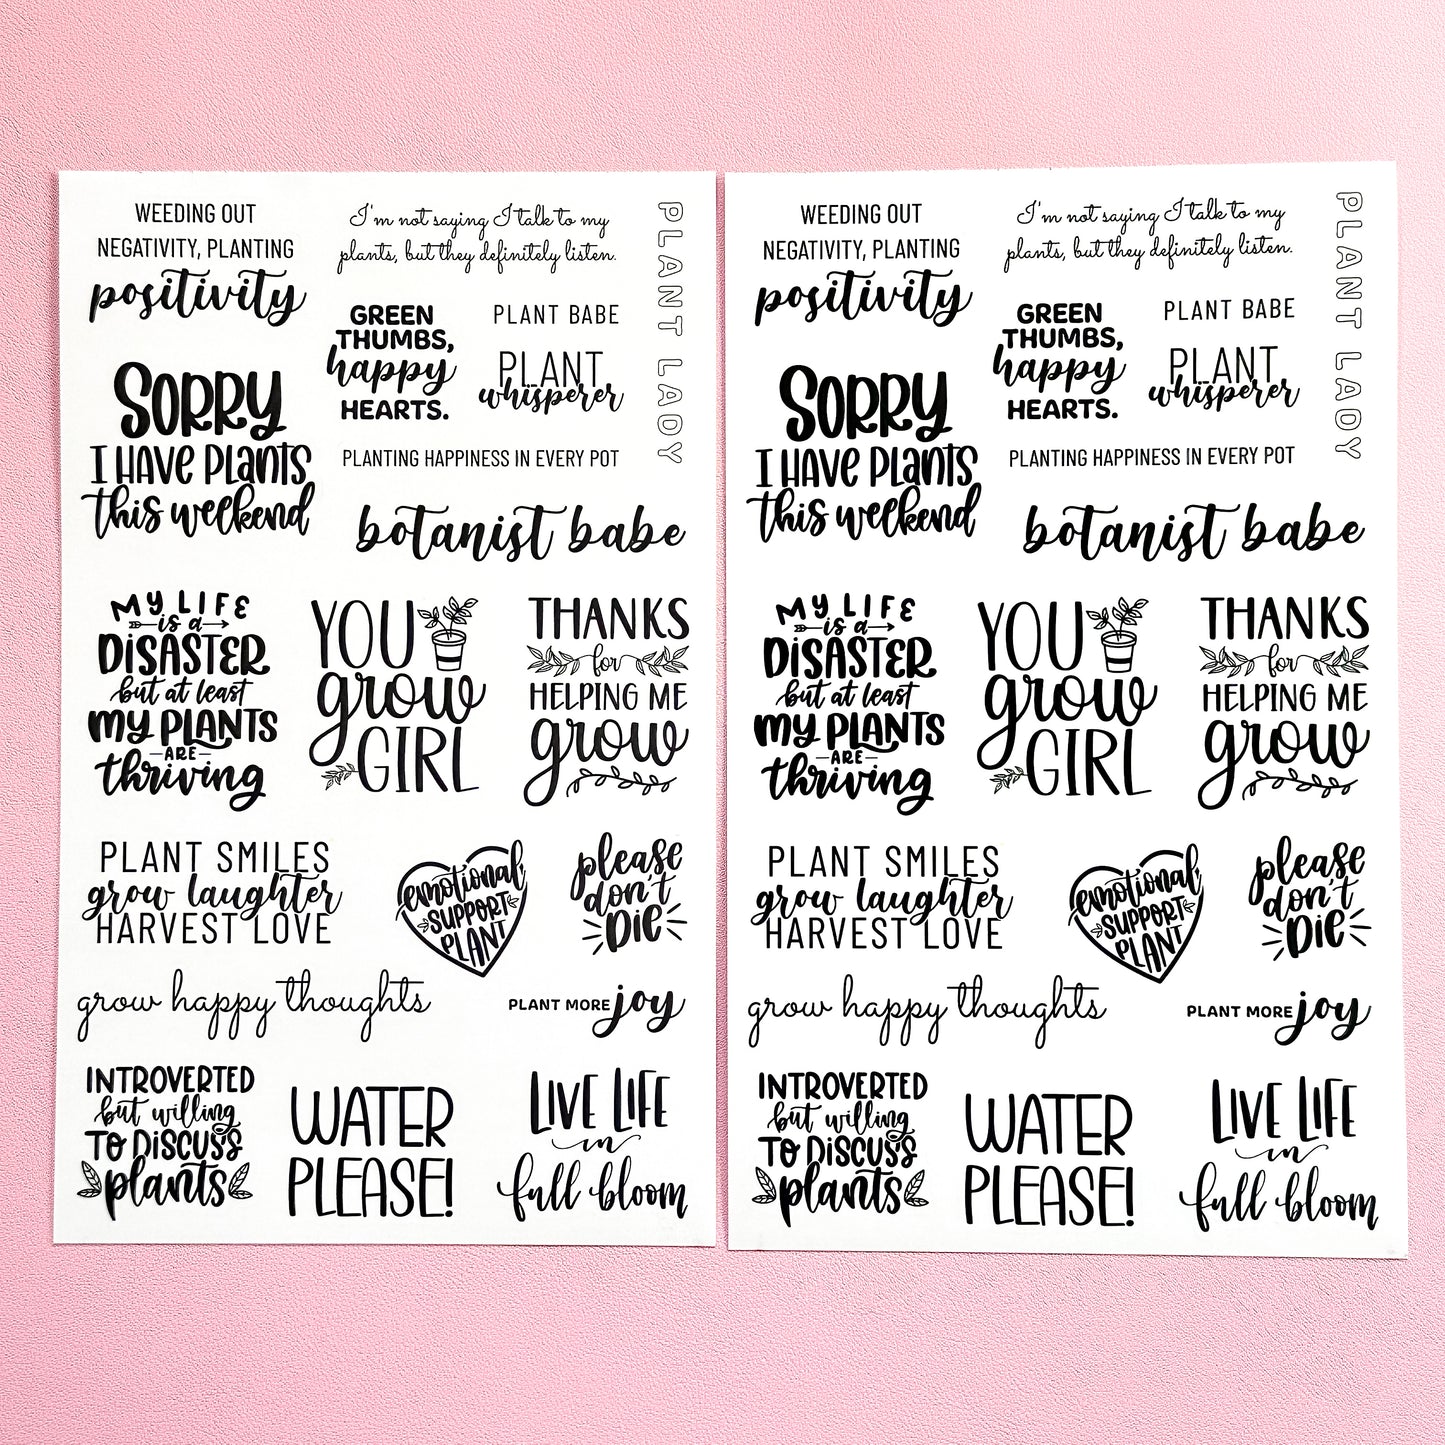 WEEDING OUT
NEGATIVITY, PLANTING
positivity
I'm not saying I talk to my
plants, but they definitely listen.
PLANT LADY
GREEN
THUMBS,
happy
HEARTS.
PLANT BABE
PLANT
whisperer
SORRY
I HAVE PLANTS
this weekend
PLANTING HAPPINESS IN EVERY POT
botanist babe
MY LIFE
is a
DISASTER
but at least
MY PLANTS
ARE
thriving
YOU
grow
GIRL
THANKS
for
HELPING ME
grow
PLANT SMILES
grow laughter
HARVEST LOVE
emotional
SUPPORT
PLANT
please
don't
DIE
grow happy thoughts
PLANT MORE joy
INTROVERTED
but willing
TO DISCUSS
plants
WATER
PLEASE!
LIVE LIFE
in
full bloom
WEEDING OUT
NEGATIVITY, PLANTING
positivity
I'm not saying I talk to my
plants, but they definitely listen.
PLANT LADY
GREEN
THUMBS,
happy
HEARTS.
PLANT BABE
PLANT
whisperer
SORRY
I HAVE PLANTS
this weekend
PLANTING HAPPINESS IN EVERY POT
botanist babe
MY LIFE
is a
DISASTER
but at least
MY PLANTS
ARE
thriving
YOU
grow
GIRL
THANKS
for
HELPING ME
grow
PLANT SMILES
grow laughter
HARVEST LOVE
emotional
SUPPORT
PLANT
please
don't
DIE
grow happy thoughts
PLANT MORE joy
INTROVERTED
but willing
TO DISCUSS
plants
WATER
PLEASE!
LIVE LIFE
in
full bloom